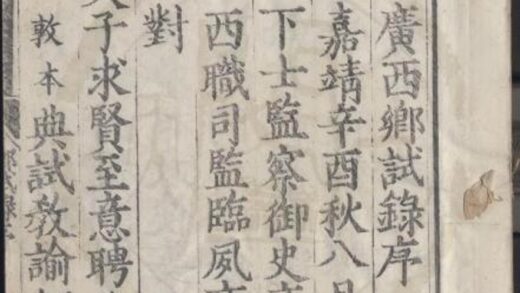 廣西鄉試錄序
嘉靖辛酉秋八月
下士監察御史
西職司監臨夙
對
天子求賢至意聘
敦本典試教諭